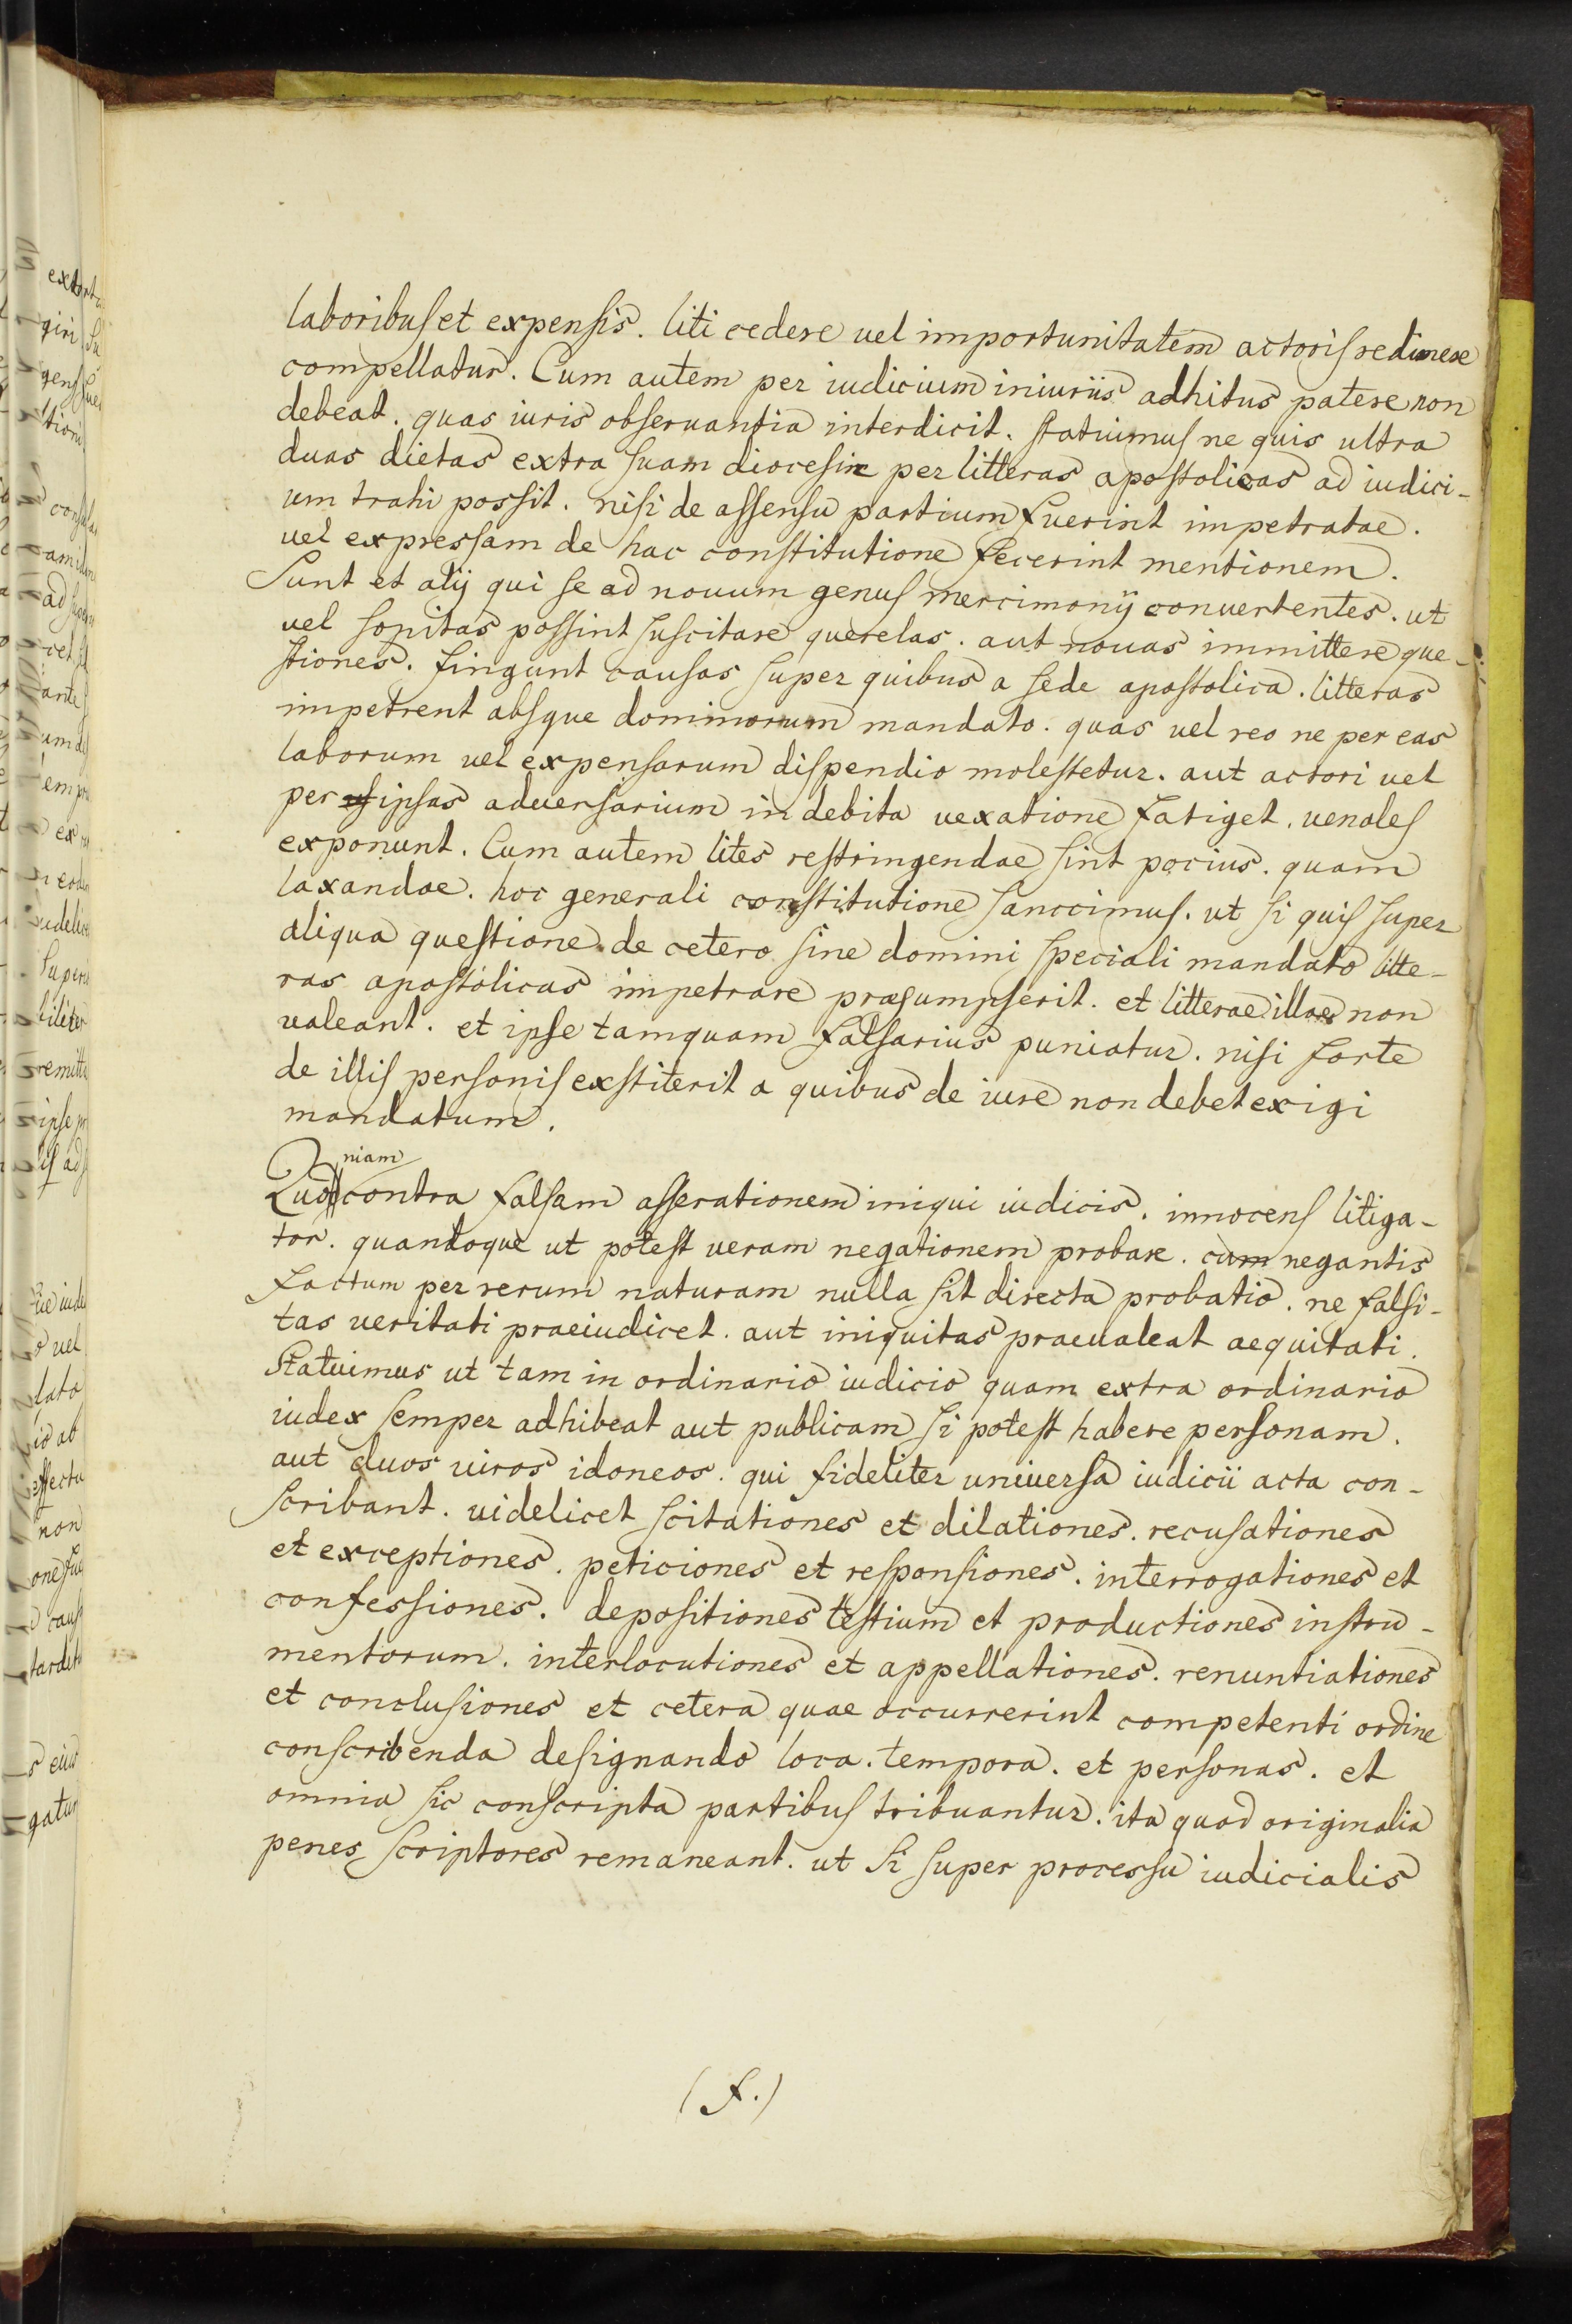 laboribus et expensis. liti cedere uel importunitatem actoris redimere
compellatur. Cum autem per iudicium iniuriis adhitus patere non
debeat. quas iuris obseruantia interdicit. statuimus ne quis ultra
duas dietas extra suam diocesim per litteras apostolicas ad iudici-
um trahi possit. nisi de assensu partium fuerint impetratae.
uel expressam de hac constitutione fecerint mentionem.
Sunt et alij qui se ad nouum genus mercimonij conuertentes. ut
uel sopitas possint suscitare querelas. aut nouas immittere que-
stiones. fingunt causas super quibus a sede apostolica. litteras
impetrent absque dominorum mandato. quas uel reo ne per eas
laborum uel expensarum dispendio molestetur. aut actori uel
per ipsas aduersarium indebita uexatione fatiget. uenales
exponunt. Cum autem lites restringendae sint pocius. quam
laxandae. hoc generali constitutione sanccimus. ut si quis super
aliqua questione de cetero sine domini speciali mandato litte-
ras apostolicas impetrare praesumpserit. et litterae illae non
ualeant. et ipse tamquam falsarius puniatur. nisi forte
de illis personis exstiterit a quibus de iure non debet exigi
mandatum.
niam
Quo contra falsam asserationem iniqui iudicis. innocens litiga-
tor. quandoque ut potest ueram negationem probare. cum negantis
factum per rerum naturam nulla sit directa probatio. ne falsi-
tas ueritati praeiudicet. aut iniquitas praeualeat aequitati.
Statuimus ut tam in ordinario iudicio quam extra ordinario
iudex semper adhibeat aut publicam si potest habere personam.
aut duos uiros idoneos. qui fideliter uniuersa iudicii acta con-
scribant. uidelicet scitationes et dilationes. recusationes
et exceptiones. peticiones et responsiones. interrogationes et
confessiones. depositiones testium et productiones instru-
mentorum. interlocutiones et appellationes. renuntiationes
et conclusiones et cetera quae occurrerint competenti ordine
conscribenda designando loca. tempora. et personas. et
omnia sic conscripta partibus tribuantur. ita quod originalia
penes scriptores remaneant. ut si super processu iudicialis
(f.)